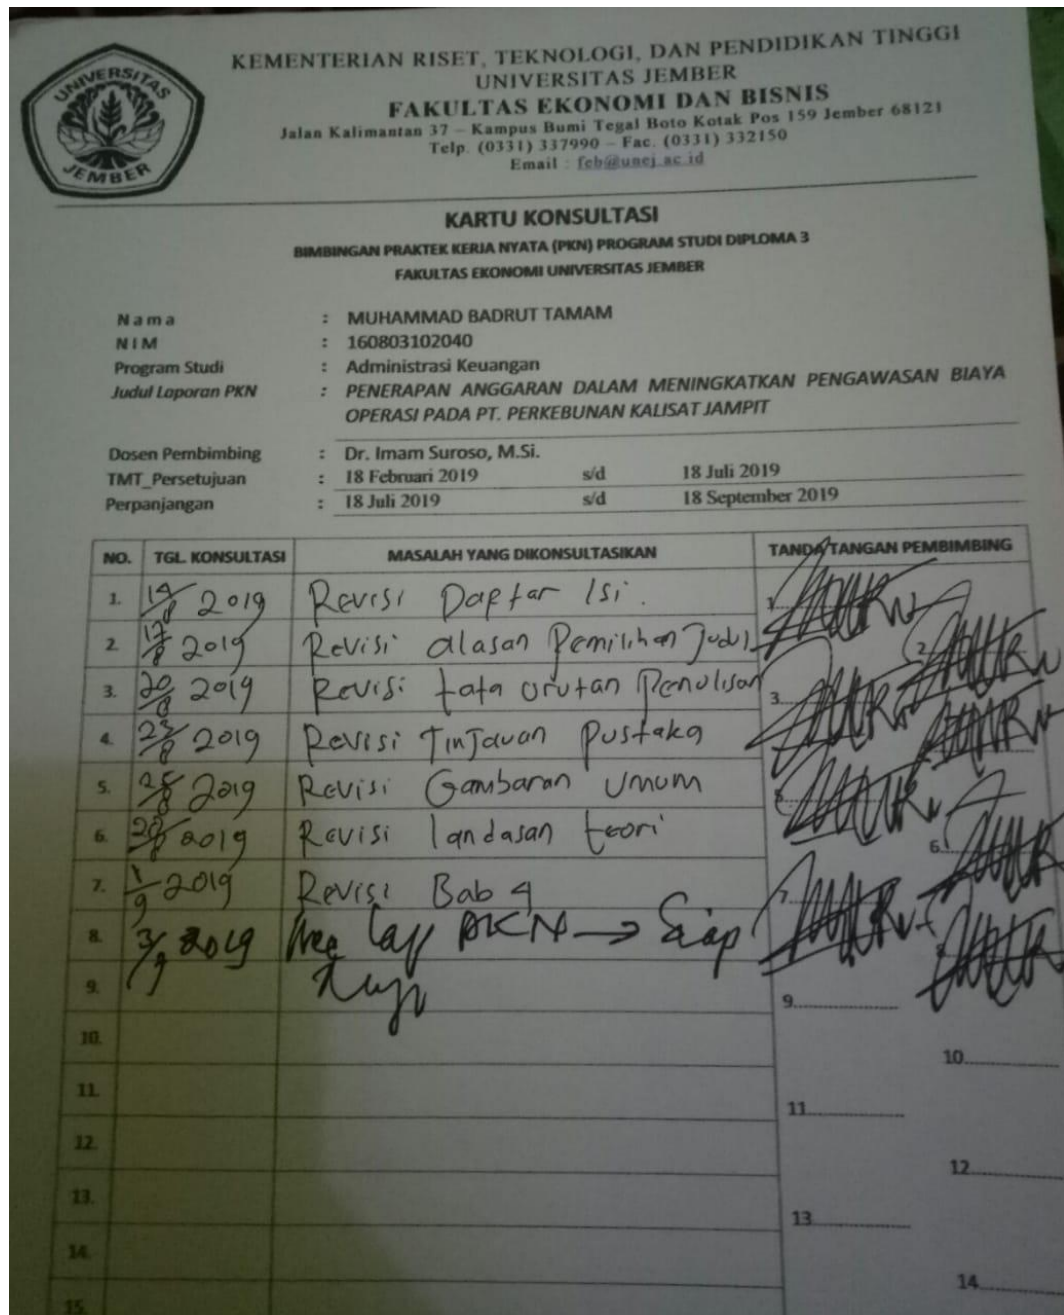 UNIVERSITAS
JEMBER
KEMENTERIAN RISET, TEKNOLOGI, DAN PENDIDIKAN TINGGI
UNIVERSITAS JEMBER
FAKULTAS EKONOMI DAN BISNIS
Jalan Kalimantan 37 – Kampus Bumi Tegal Boto Kotak Pos 159 Jember 68121
Telp. (0331) 337990 – Fac. (0331) 332150
Email : feb@unej.ac.id
KARTU KONSULTASI
BIMBINGAN PRAKTEK KERJA NYATA (PKN) PROGRAM STUDI DIPLOMA 3
FAKULTAS EKONOMI UNIVERSITAS JEMBER
Nama : MUHAMMAD BADRUT TAMAM
NIM : 160803102040
Program Studi : Administrasi Keuangan
Judul Laporan PKN : PENERAPAN ANGGARAN DALAM MENINGKATKAN PENGAWASAN BIAYA
OPERASI PADA PT. PERKEBUNAN KALISAT JAMPIT
Dosen Pembimbing : Dr. Imam Suroso, M.Si.
TMT_Persetujuan : 18 Februari 2019 s/d 18 Juli 2019
Perpanjangan : 18 Juli 2019 s/d 18 September 2019
NO. TGL. KONSULTASI MASALAH YANG DIKONSULTASIKAN TANDA TANGAN PEMBIMBING
1. 14/8 2019 Revisi Daftar Isi. 1
2. 2019 Revisi alasan Pemilihan Judul 2
3. 20/8 2019 Revisi tata urutan Penulisan 3
4. 23/8 2019 Revisi Tinjauan Pustaka
5. 2019 Revisi Gambaran Umum 5
6. 2019 Revisi landasan teori 6
7. 1/9 2019 Revisi Bab 4 7
8. 3/9 2019 Acc Lap PKN → Siap
9. Uji 9
10. 10
11. 11
12. 12
13. 13
14. 14
15.